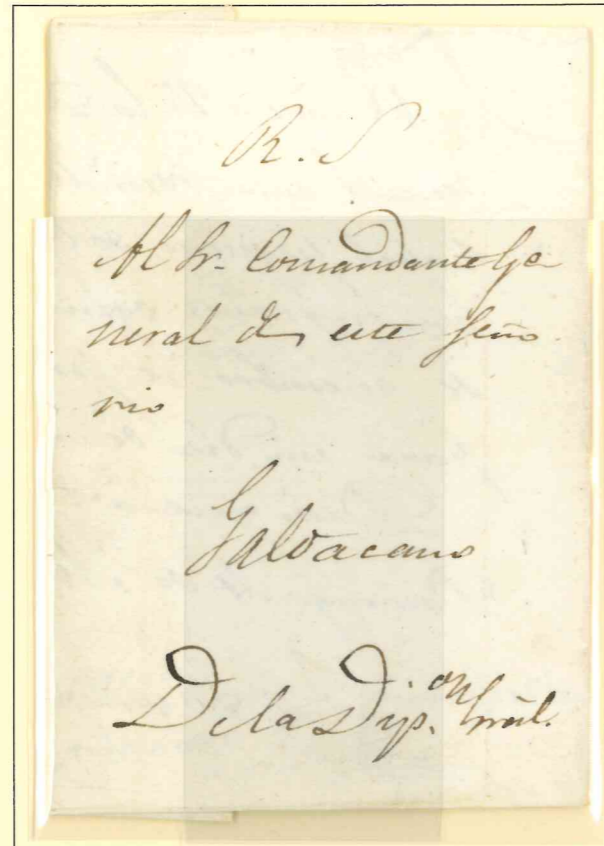 R. S
Al Sr. Comandante Ge
neral de este Seño
rio
Galdacano
De la Dip.on Gral.